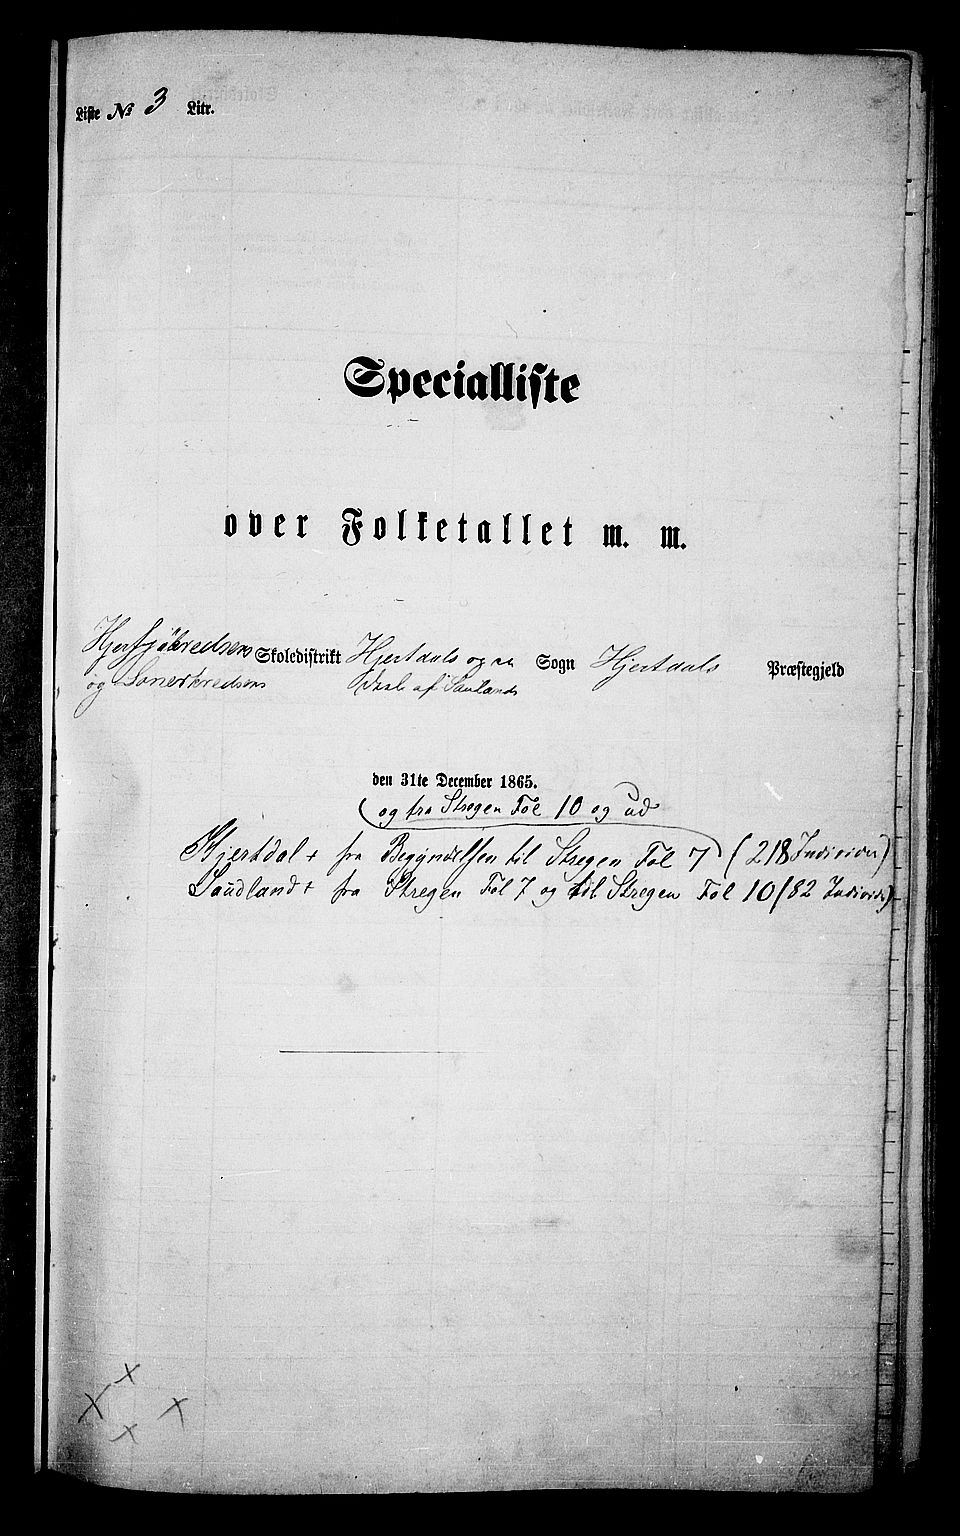 Liste № 3 Litr.
Specialliste
over Folketallet m. m.
Hjersjökredsens Skoledistrikt Hjertdals og en Sogn Hjertdals Præstegjeld
og kredsens Deel af Saulands
den 31te December 1865.
(og fra Stregen Fol 10 og ud
Hjertdal + fra Begyndelsen til Stregen Fol 7) (218 Individer)
Saudland + fra Stregen Fol 7 og til Stregen Fol 10 (82 Individ)